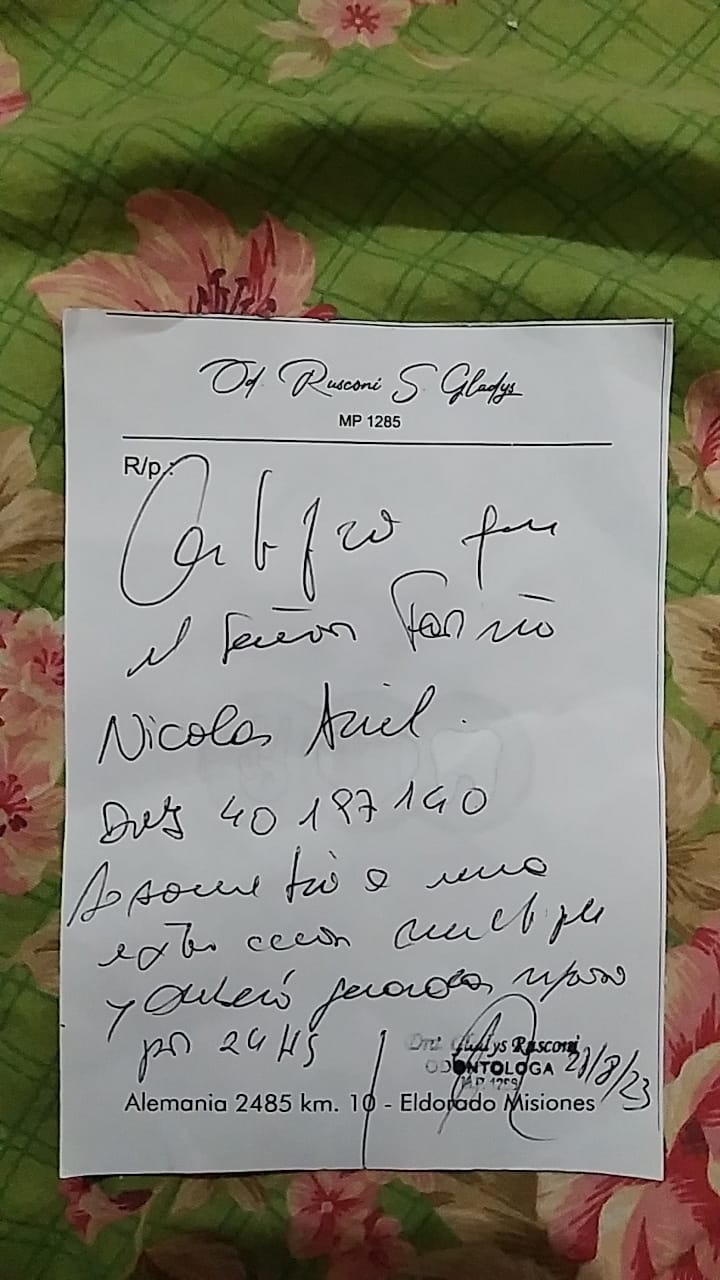 Od. Rusconi S. Gladys
MP 1285
R/p.:
Certifico que
el señor
Nicolas Ariel.
DNI 40 197 140
Se sometió a una
extracción multiple
y deberá guardar reposo
por 24 Hs
Dra. Gladys Rusconi
ODONTOLOGA
/8/23
Alemania 2485 km. 10 - Eldorado Misiones